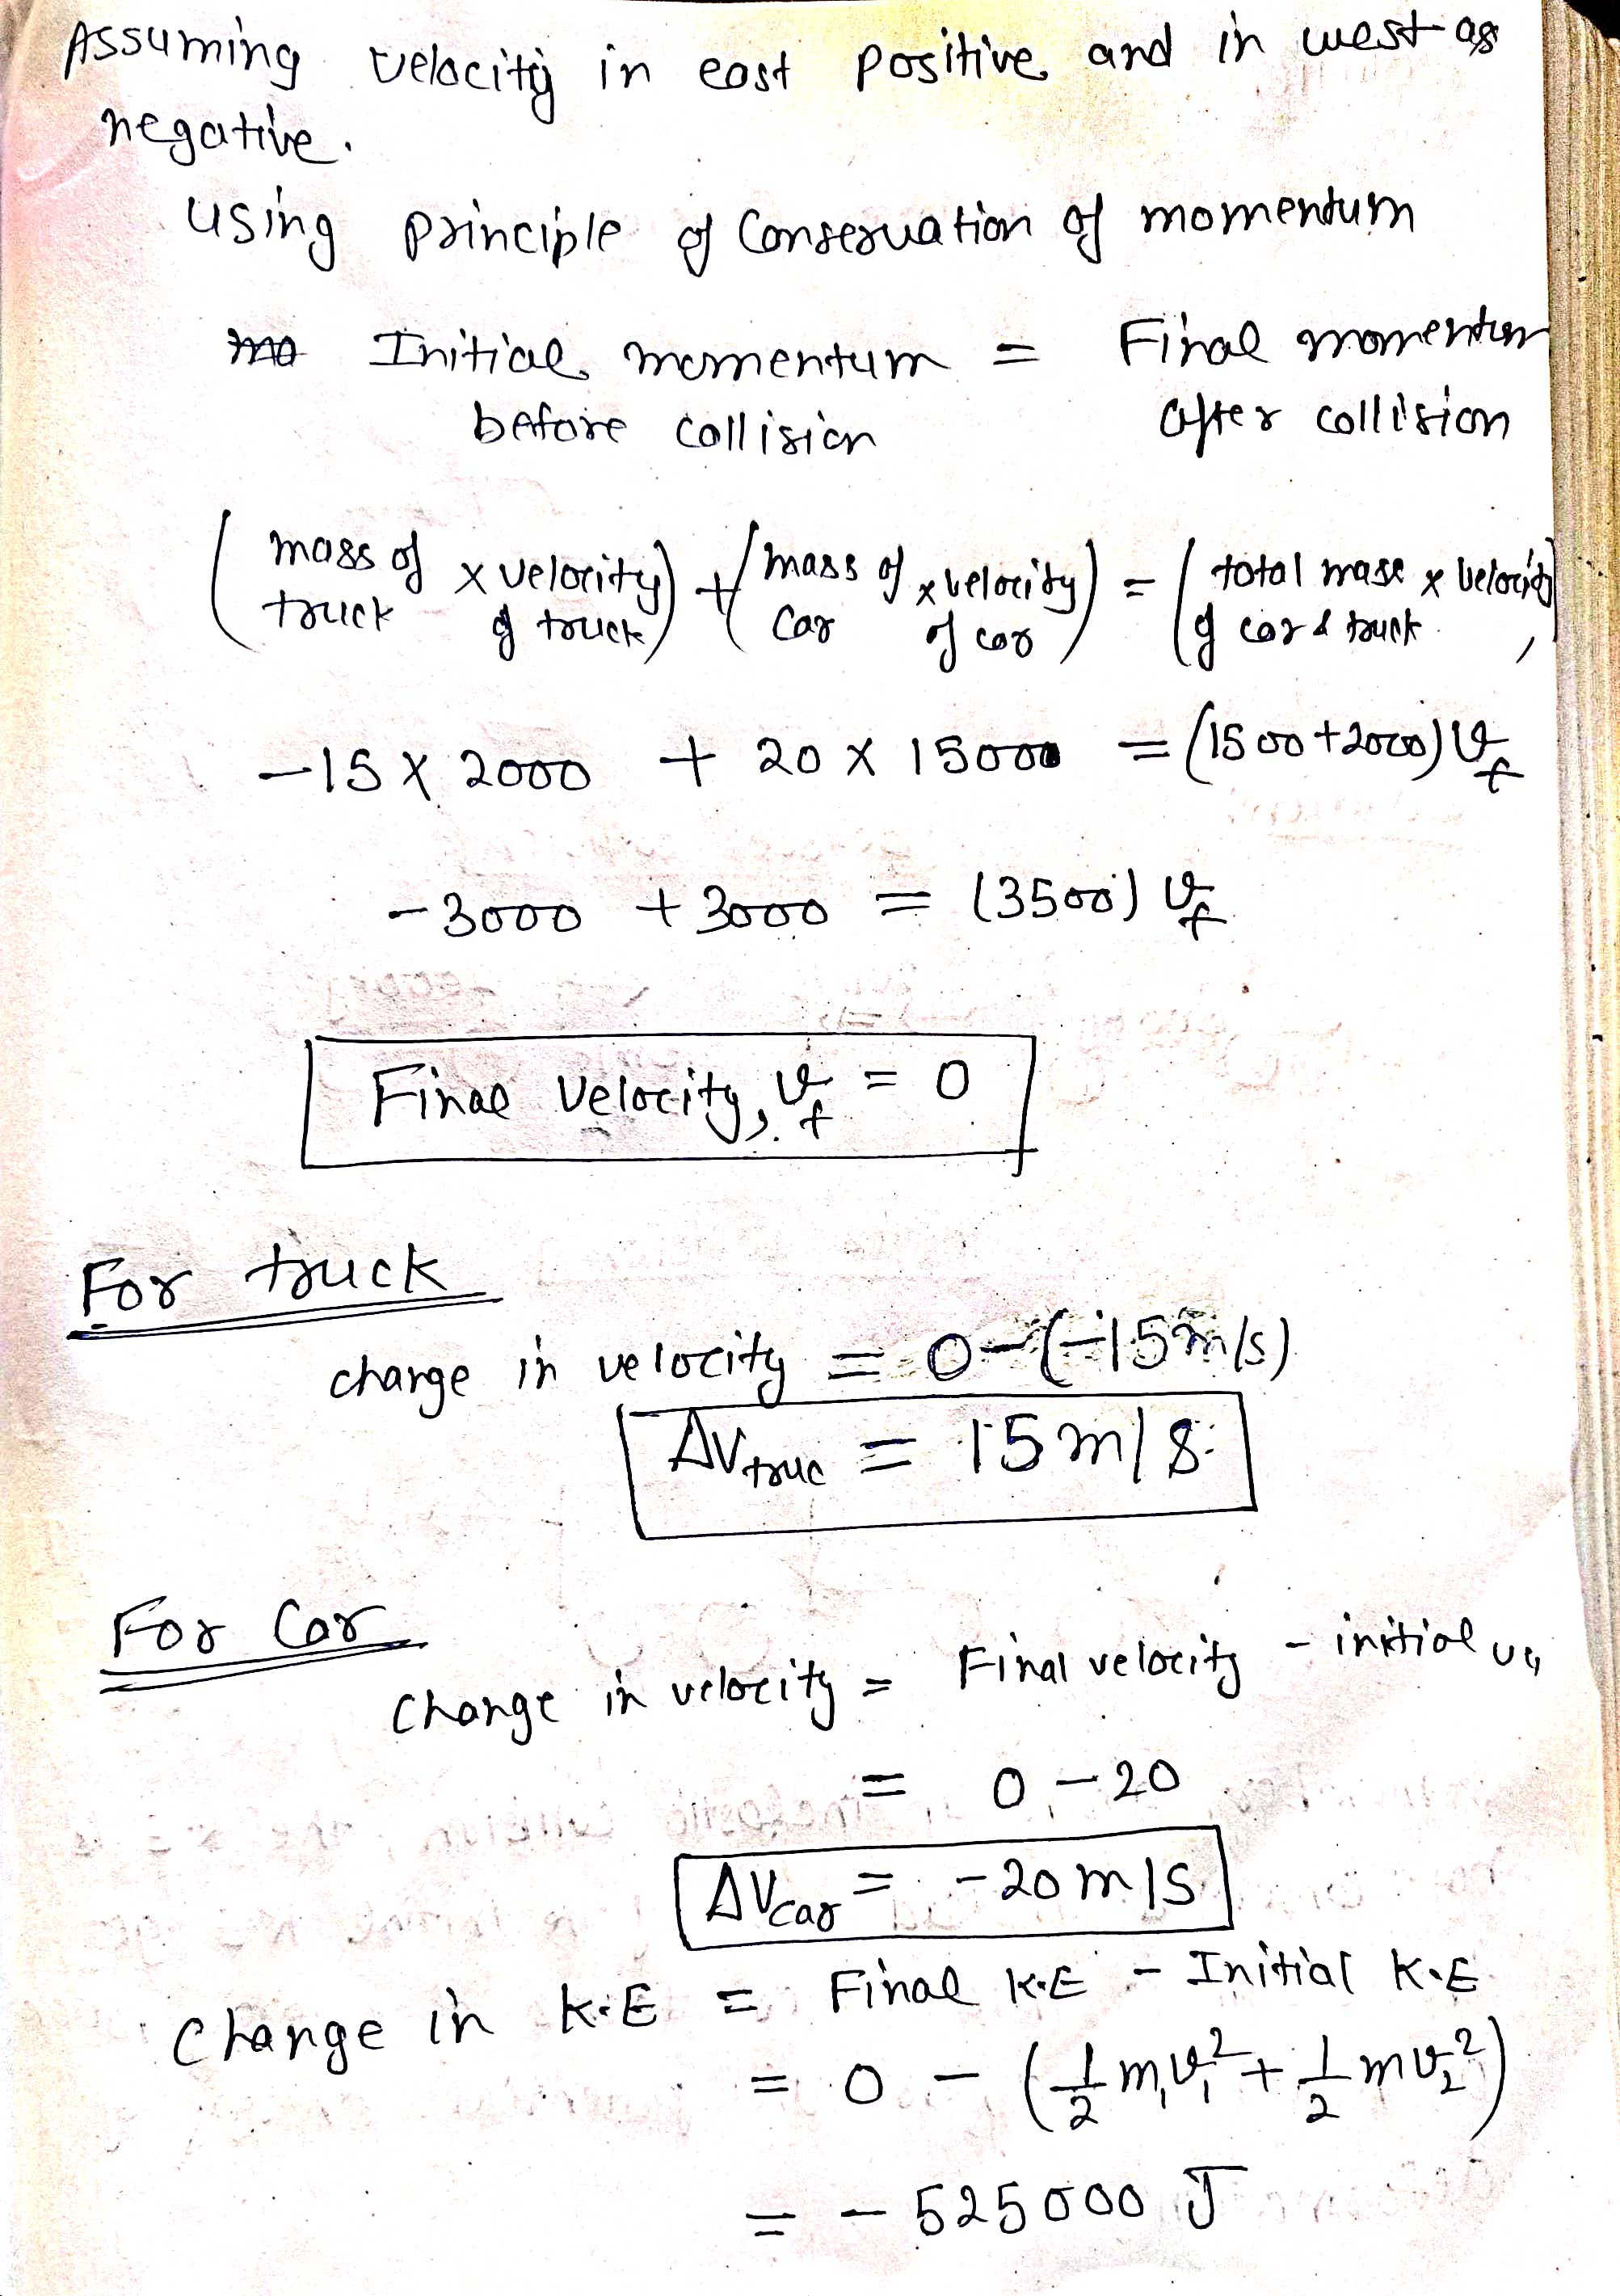 Assuming velocity in east positive and in west as
negative.
using principle of Conservation of momentum
Initial momentum = Final momentum
before collision after collision
(mass of truck x velocity of truck) + (mass of car x velocity of car) = (total mass of car & truck x velocity)
-15 x 2000 + 20 x 15000 = (1500+2000) Vf
-3000 + 3000 = (3500) Vf
Final Velocity, Vf = 0
For truck
change in velocity = 0-(-15m/s)
ΔVtruc = 15 m/s
For Car
change in velocity = Final velocity - initial ve
= 0 - 20
ΔVcar = -20 m/s
Change in K.E = Final K.E - Initial K.E
= 0 - (1/2 m₁v₁² + 1/2 mv₂²)
= - 525000 J